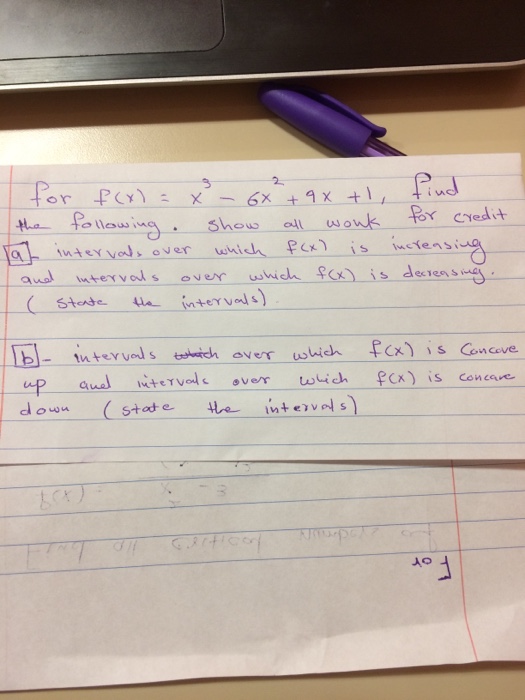 for f(x) = x³ - 6x² + 9x + 1, find
the following. Show all work for credit
a - intervals over which f(x) is increasing
and intervals over which f(x) is decreasing.
( state the intervals)
b - intervals which over which f(x) is Concave
up and intervals over which f(x) is concave
down (state the intervals)
f(x) =
Find all critical numbers of
For